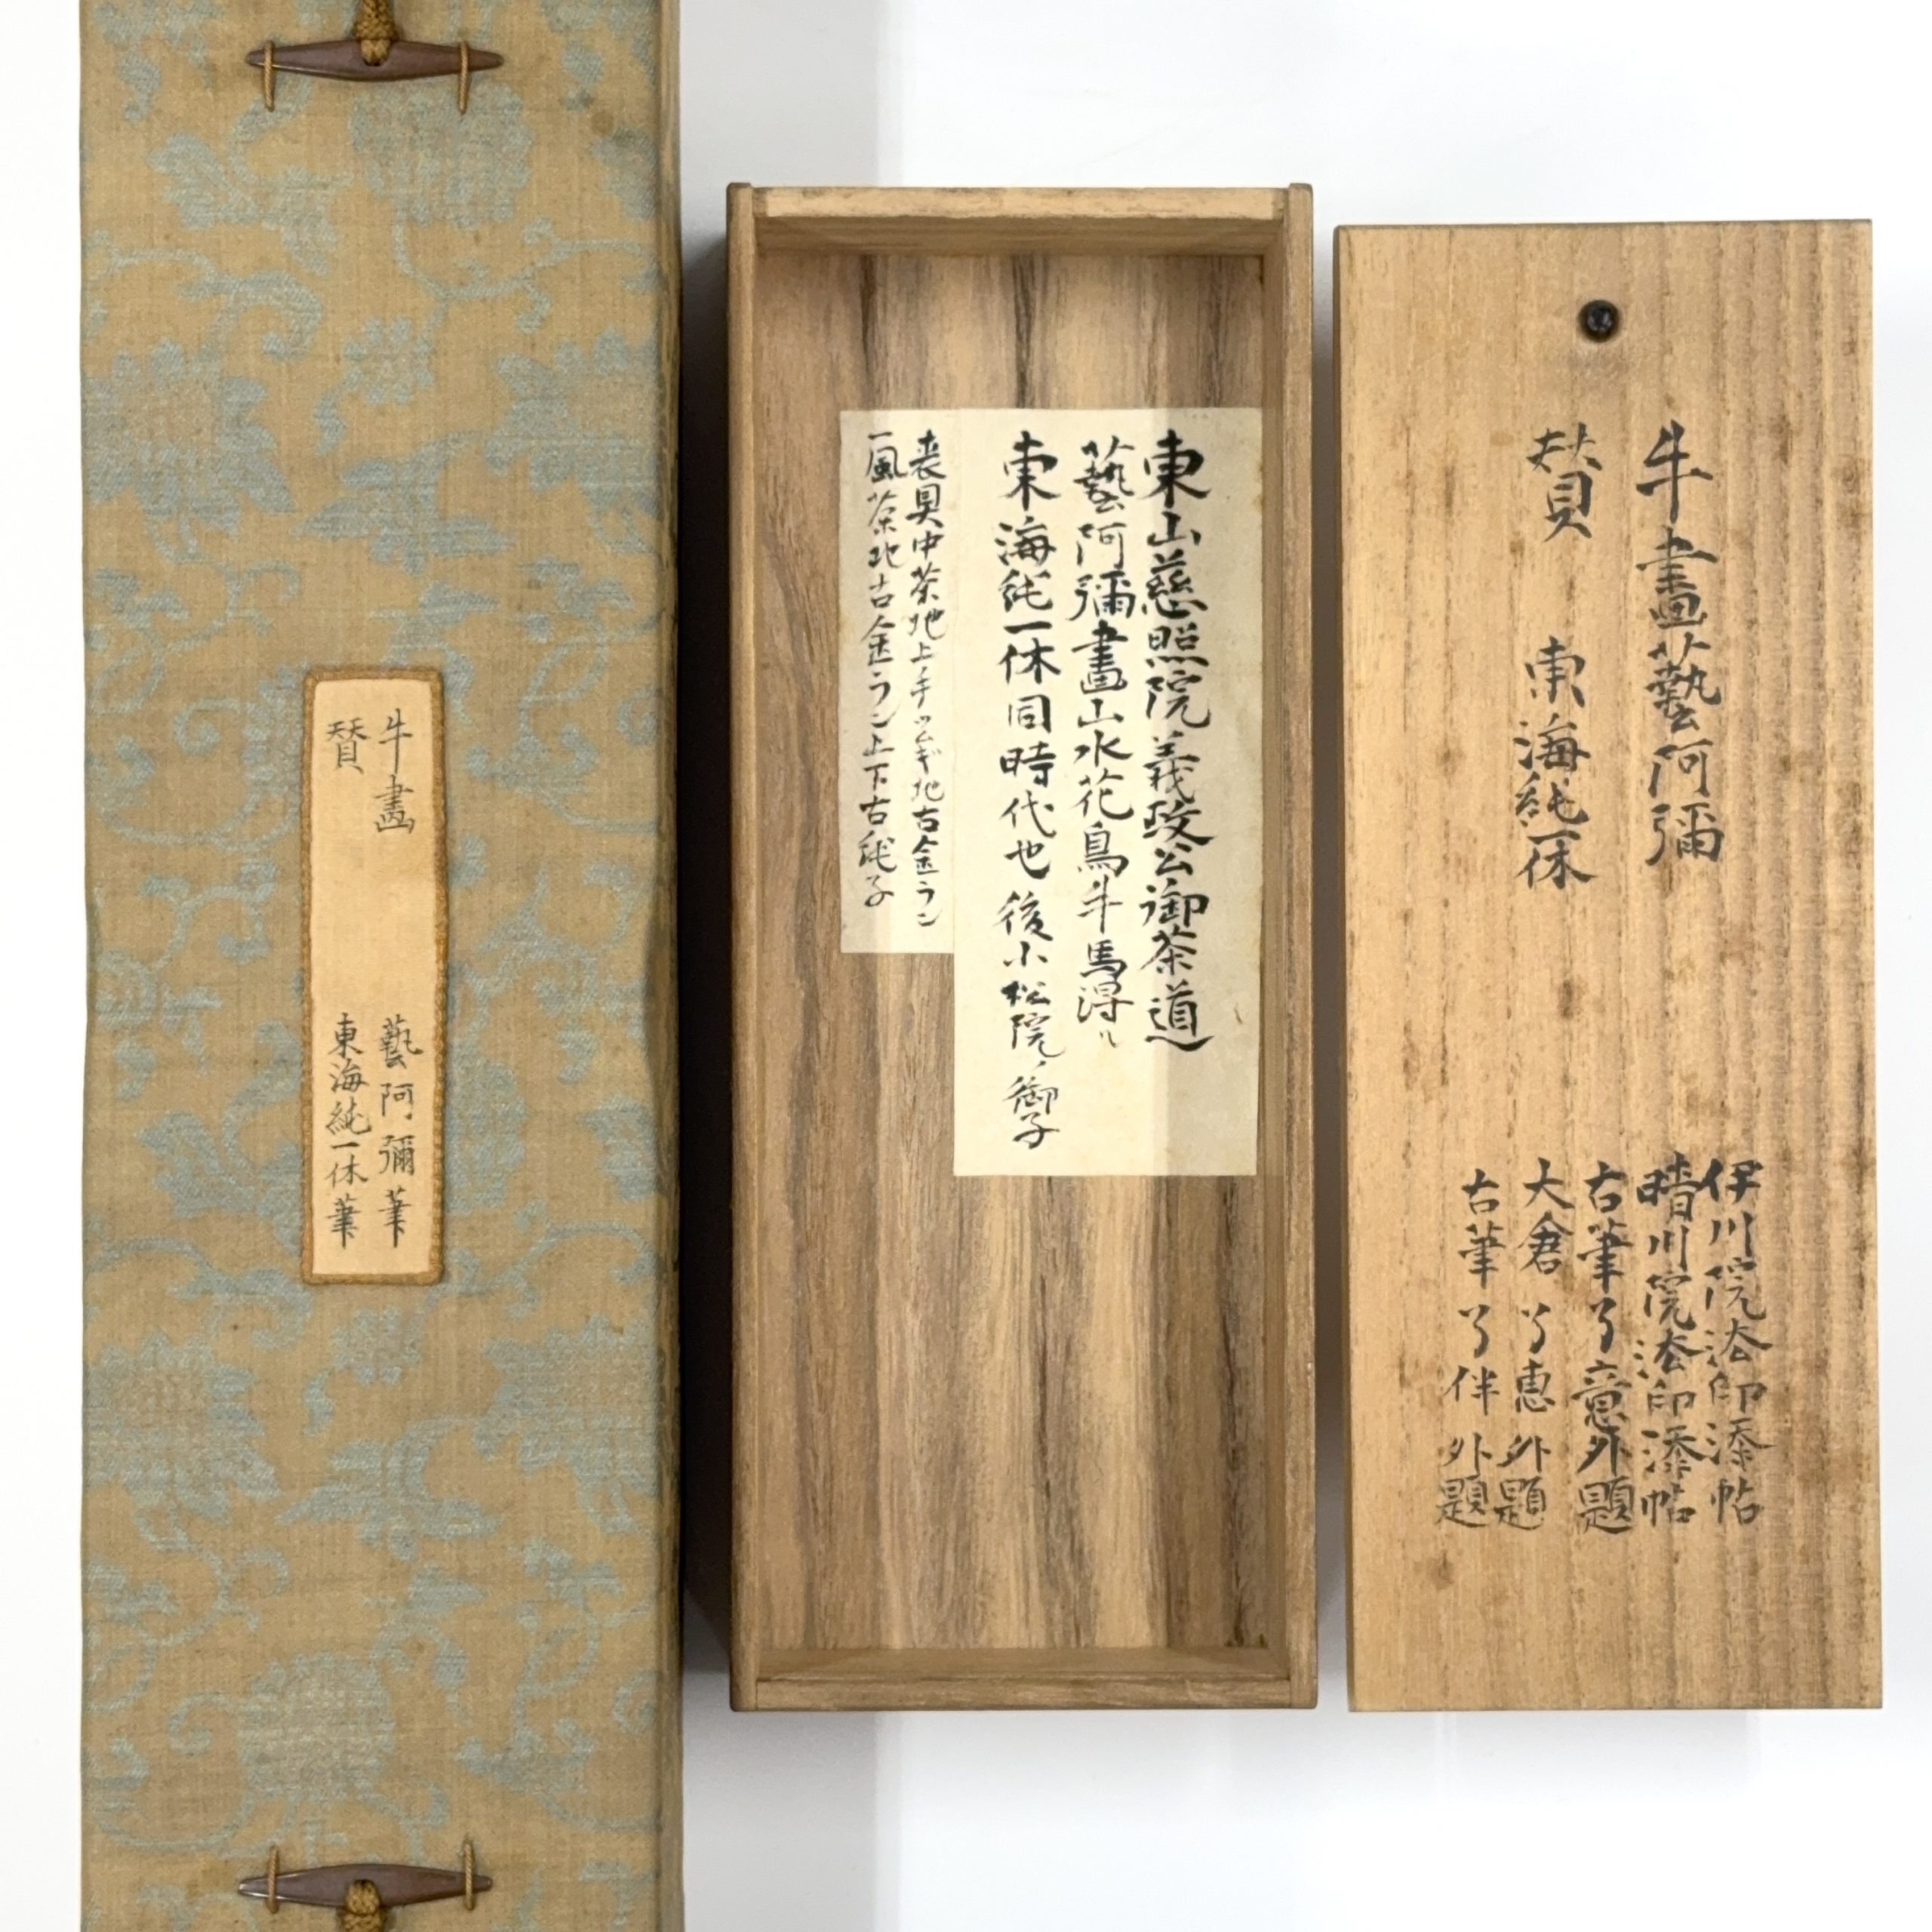 牛畫
藝阿彌筆
賛
東海純一休筆
東山慈照院義政公御茶道
藝阿彌畫山水花鳥牛馬得ル
東海純一休同時代也後小松院ノ御子
表具中茶地上手ツムギ地古金ラン
一風茶地古金ラン上下古純子
牛畫藝阿彌
賛 東海純一休
伊川院法印添帖
晴川院法印添帖
古筆了意外題
大倉了恵外題
古筆了伴外題